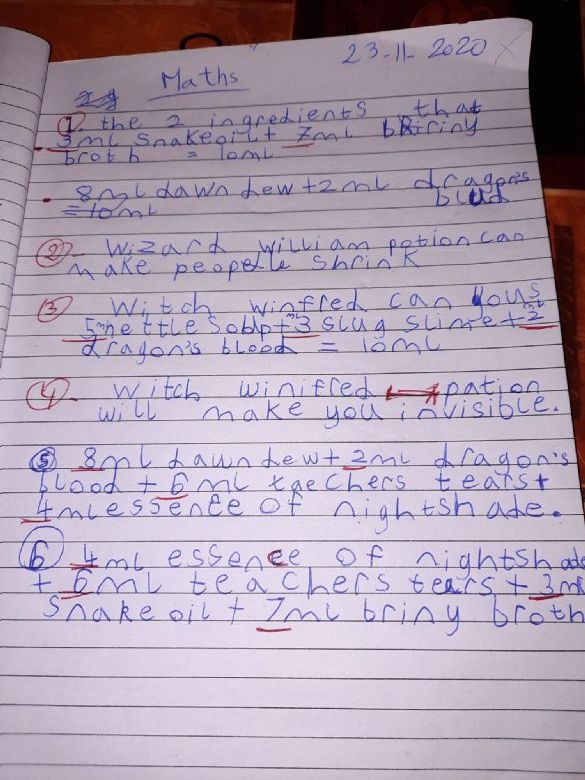 23-11-2020
Maths
1. the 2 ingredients that
3ml snakeoil + 7ml briny
broth = 10ml
8ml dawn dew + 2ml dragon's
blud
=10ml
2- Wizard william potion can
make peopelle shrink
3 Witch winfred can yous
5ml nettle soup + 3ml slug slime + 2ml
dragon's blood = 10ml
4- Witch winifred pation
will make you invisible.
5 8ml dawn dew + 2ml dragon's
blood + 6ml teachers tears +
4ml essence of nightshade.
6 4ml essence of nightshade
+ 6ml teachers tears + 3ml
Snake oil + 7ml briny broth